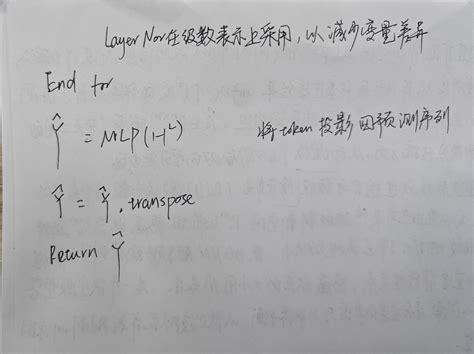 LayerNor在级数表示上采用，以减少变量差异
End for
Ŷ = MLP(H^L) 将token投影回预测序列
Ŷ = Ŷ.transpose
Return Ŷ